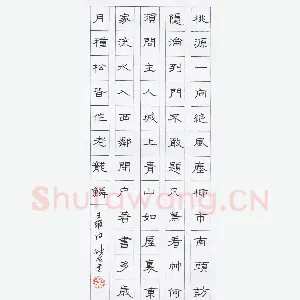 桃源一向絕風塵柳市南頭訪
隱淪到門不敢題凡鳥看竹何
須問主人城上青山如屋裏東
家流水入西鄰閉戶著書多歲
月種松皆作老龍鱗
王維詩
Shufawang.CN